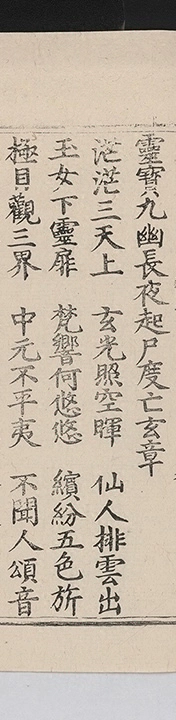 靈寶九幽長夜起尸度亡玄章
茫茫三天上 玄光照空暉 仙人排雲出
玉女下靈扉 梵響何悠悠 繽紛五色旂
極目觀三界 中元不平夷 不聞人頌音